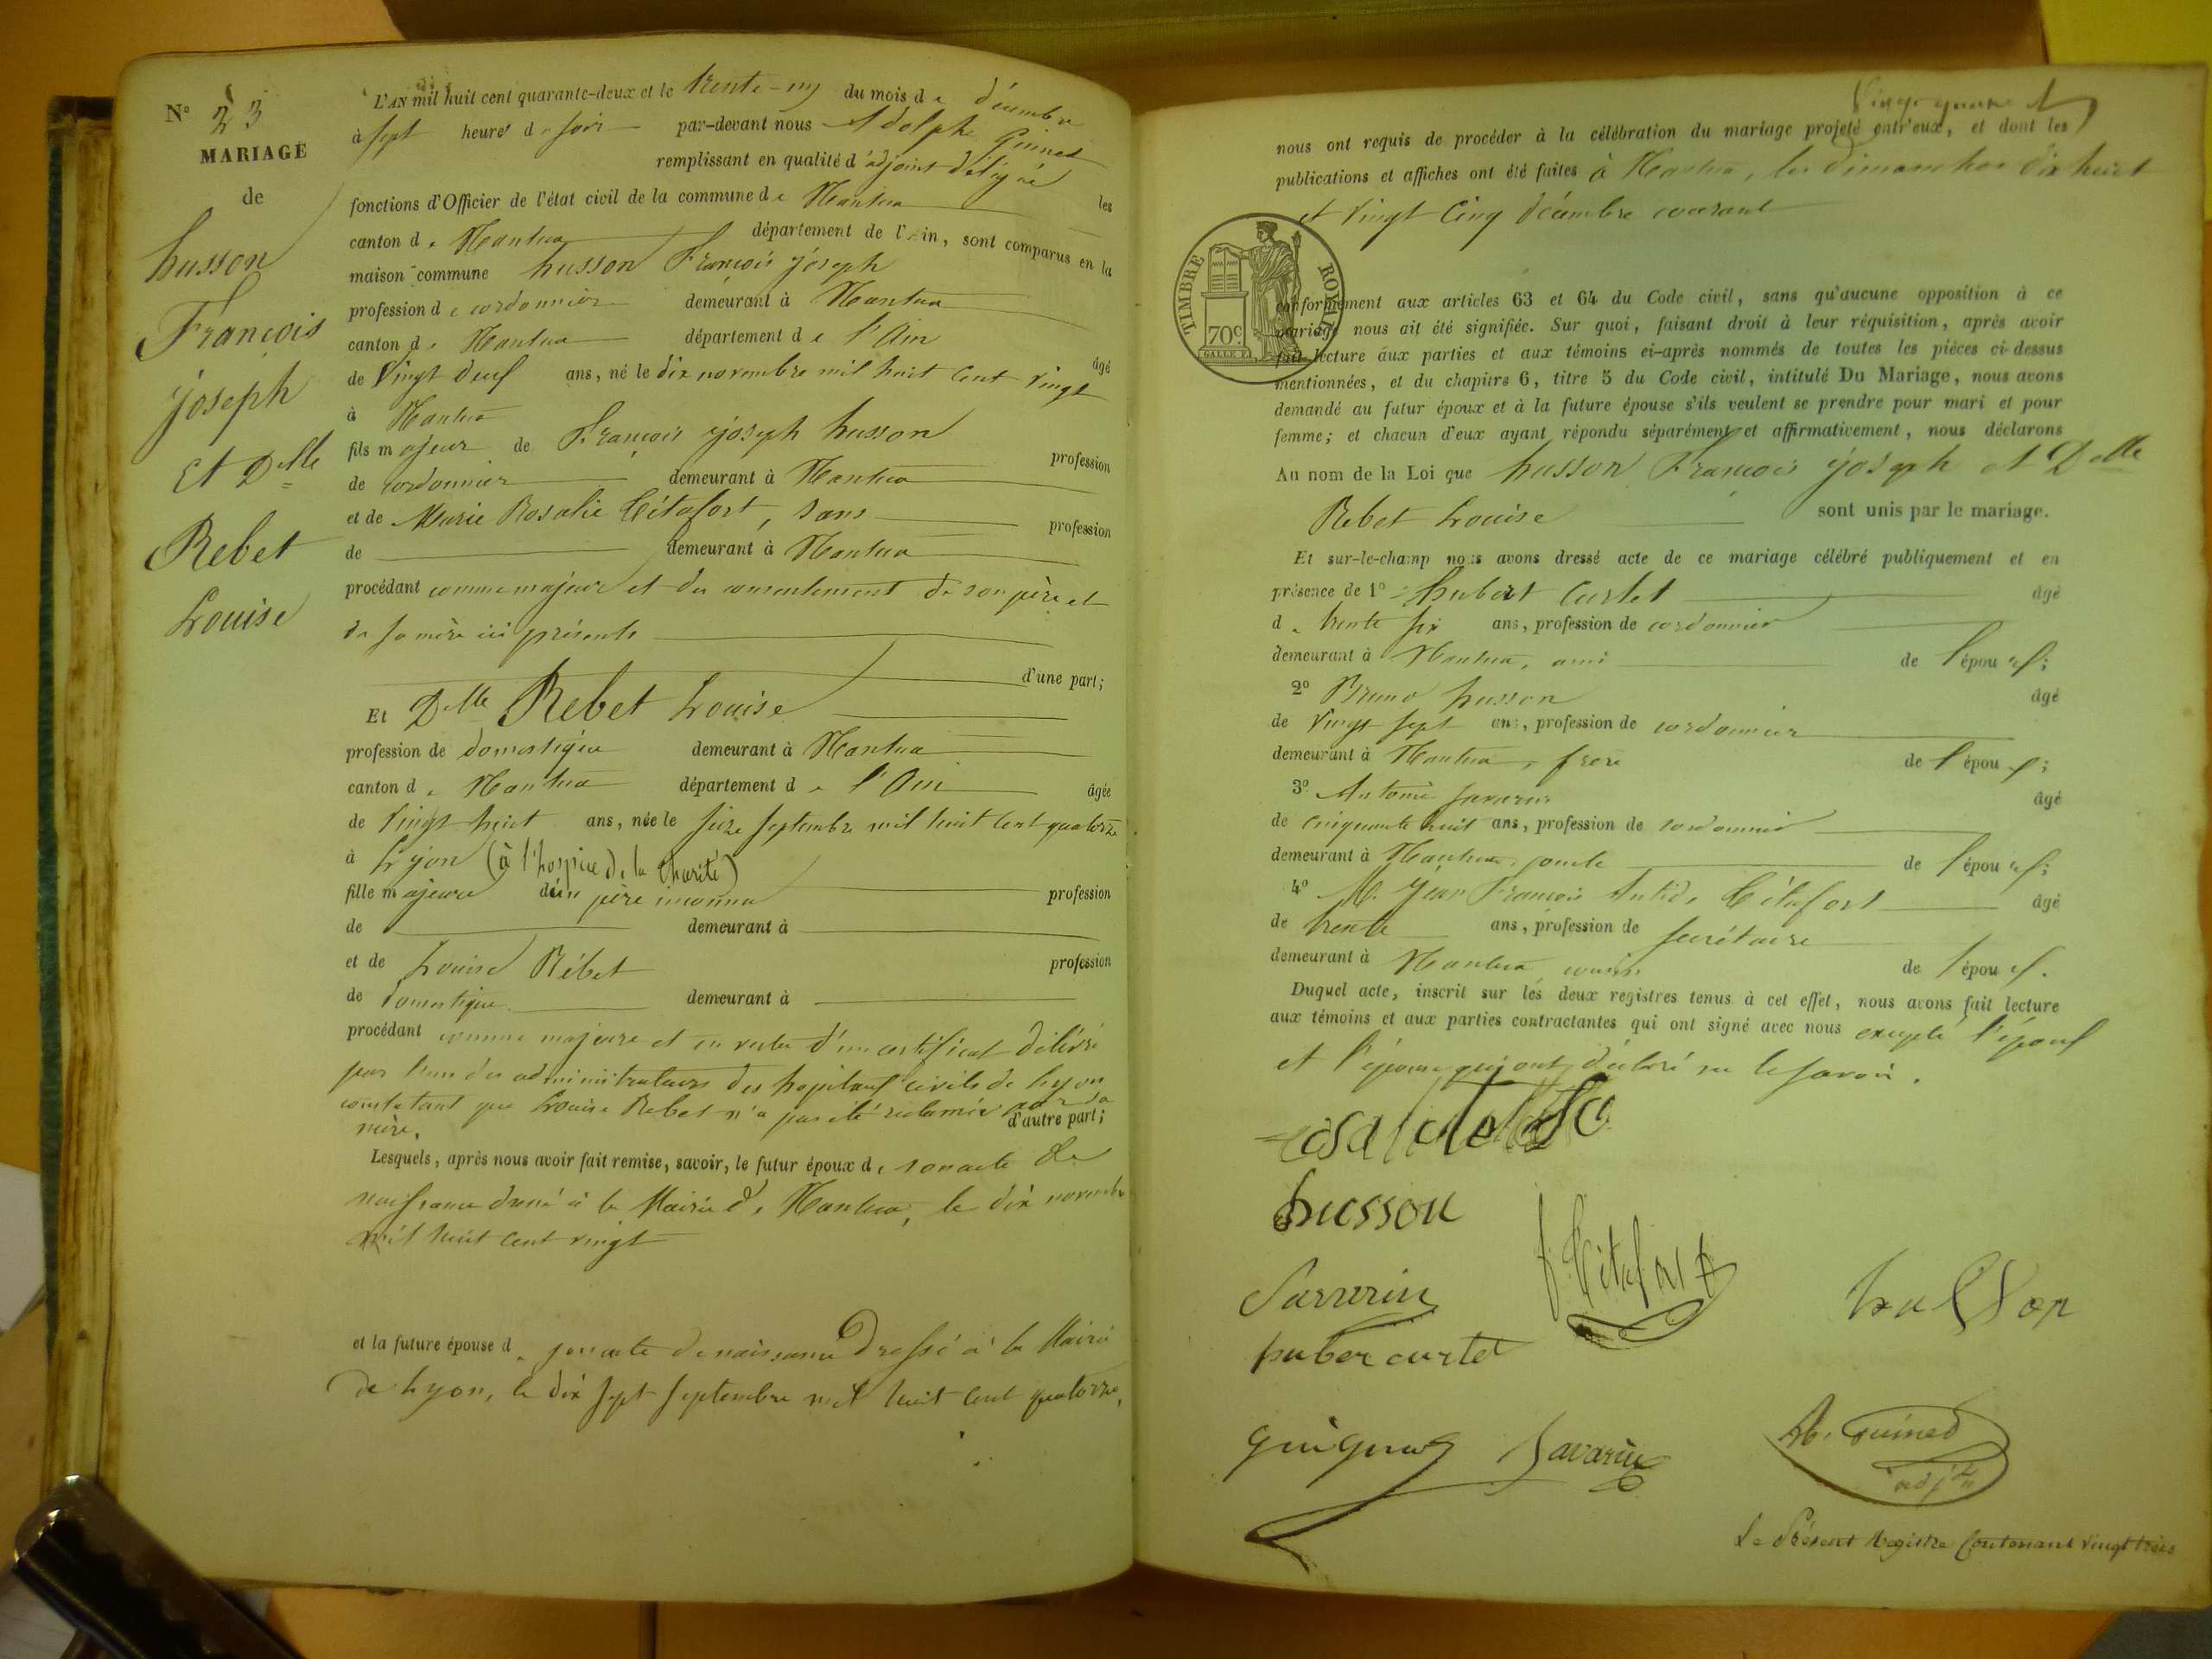 N° 23
MARIAGE
de
husson
François
joseph
et Delle
Rebet
Louise
L'AN mil huit cent quarante-deux et le trente-un du mois de décembre
à sept heures du soir par-devant nous Adolphe Guinet
remplissant en qualité d'adjoint délégué les
fonctions d'Officier de l'état civil de la commune de Nantua
canton de Nantua département de l'Ain, sont comparus en la
maison commune husson François joseph
profession de cordonnier demeurant à Nantua
canton de Nantua département de l'Ain âgé
de vingt deux ans, né le dix novembre mil huit cent vingt
à Nantua
fils majeur de François joseph husson profession
de cordonnier demeurant à Nantua
et de Marie Rosalie Cétafort, sans profession
de demeurant à Nantua
procédant comme majeur et du consentement de son père et
de sa mère ici présents
d'une part;
Et Delle Rebet Louise
profession de domestique demeurant à Nantua
canton de Nantua département de l'Ain âgée
de vingt huit ans, née le seize septembre mil huit cent quatorze
à Lyon (à l'hospice de la Charité)
fille majeure d'un père inconnu profession
de demeurant à
et de Louise Rébet profession
de domestique demeurant à
procédant comme majeure et en vertu d'un certificat délivré
par l'un des administrateurs des hopitaux civils de Lyon
constatant que Louise Rebet n'a pas été réclamée par sa
mère. d'autre part;
Lesquels, après nous avoir fait remise, savoir, le futur époux de son acte de
naissance dressé à la Mairie de Nantua, le dix novembre
mil huit cent vingt
et la future épouse de son acte de naissance dressé à la Mairie
de Lyon, le dix sept septembre mil huit cent quatorze,
Vingt quatre
nous ont requis de procéder à la célébration du mariage projeté entr'eux, et dont les
publications et affiches ont été faites à Nantua, les dimanches dix huit
et vingt cinq décembre courant
TIMBRE ROYAL
70c
conformément aux articles 63 et 64 du Code civil, sans qu'aucune opposition à ce
mariage nous ait été signifiée. Sur quoi, faisant droit à leur réquisition, après avoir
fait lecture aux parties et aux témoins ci-après nommés de toutes les pièces ci-dessus
mentionnées, et du chapitre 6, titre 5 du Code civil, intitulé Du Mariage, nous avons
demandé au futur époux et à la future épouse s'ils veulent se prendre pour mari et pour
femme; et chacun d'eux ayant répondu séparément et affirmativement, nous déclarons
Au nom de la Loi que husson François joseph et Delle
Rebet Louise sont unis par le mariage.
Et sur-le-champ nous avons dressé acte de ce mariage célébré publiquement et en
présence de 1° hubert Curtet âgé
de trente six ans, profession de cordonnier
demeurant à Nantua, ami de l'époux;
2° Bruno husson âgé
de vingt sept ans, profession de cordonnier
demeurant à Nantua, frère de l'époux;
3° Antoine Savarin âgé
de cinquante huit ans, profession de cordonnier
demeurant à Nantua, oncle de l'époux;
4° M. Jean François Antide Cétafort âgé
de trente ans, profession de secrétaire
demeurant à Nantua cousin de l'époux.
Duquel acte, inscrit sur les deux registres tenus à cet effet, nous avons fait lecture
aux témoins et aux parties contractantes qui ont signé avec nous excepté l'époux
et l'épouse qui ont déclaré ne le savoir.
husson
Savarin
f. Cétafort
husson
huber curtet
Savarin
Ad. Guinet
adjt
Le Présent Registre Contenant vingt trois